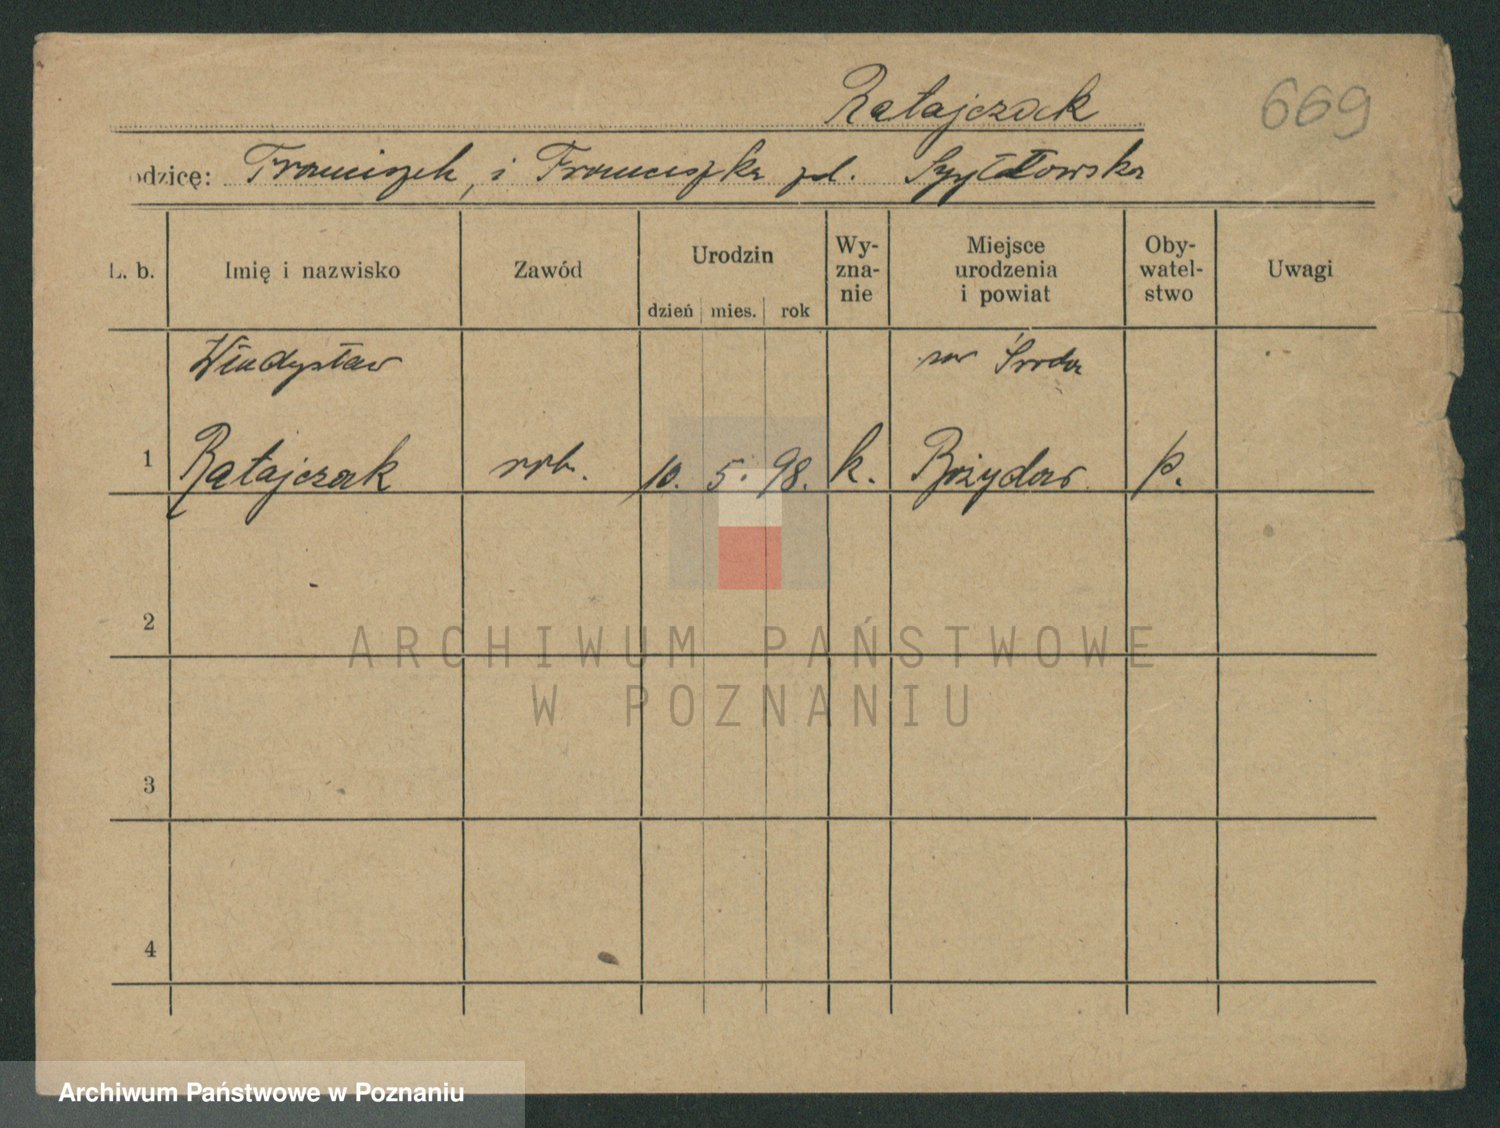 Ratajczak
669
odzicę: Franciszek, i Franciszka zd. Szytłowska
L. b.
Imię i nazwisko
Zawód
Urodzin
dzień mies. rok
Wy-
zna-
nie
Miejsce
urodzenia
i powiat
Oby-
watel-
stwo
Uwagi
Władysław
Środa
1 Ratajczak rob. 10. 5. 98. k. p.
2
3
4
ARCHIWUM PAŃSTWOWE
W POZNANIU
Archiwum Państwowe w Poznaniu